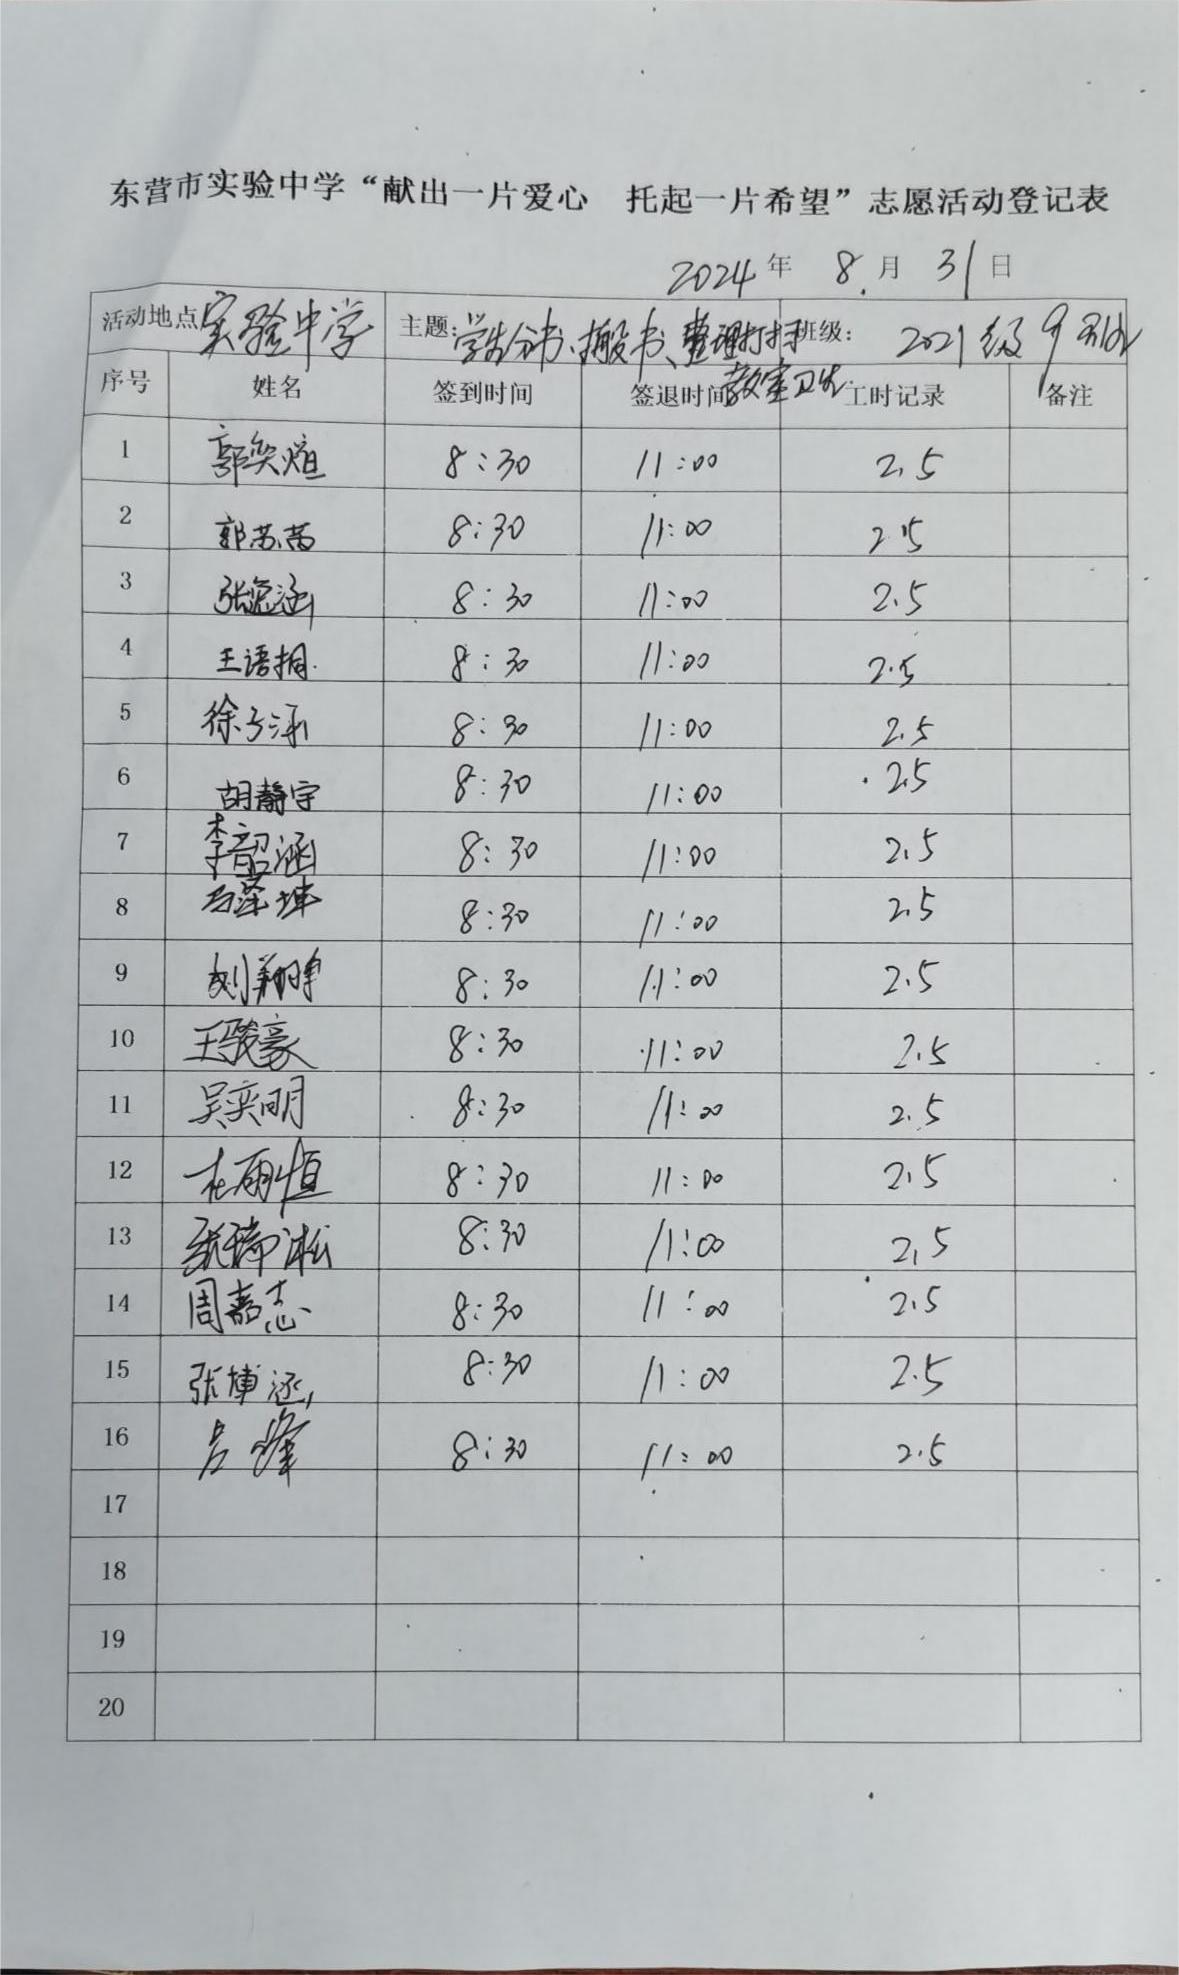 东营市实验中学“献出一片爱心 托起一片希望”志愿活动登记表
2024年 8月 31日
活动地点 实验中学 主题: 学生分书、搬书、整理打扫教室卫生 班级: 2021级9班
序号 姓名 签到时间 签退时间 工时记录 备注
1 郭奕煊 8:30 11:00 2.5
2 郭苏茜 8:30 11:00 2.5
3 张涵 8:30 11:00 2.5
4 王语桐 8:30 11:00 2.5
5 徐子涵 8:30 11:00 2.5
6 胡静宇 8:30 11:00 2.5
7 李韶涵 8:30 11:00 2.5
8 坤 8:30 11:00 2.5
9 刘翔宇 8:30 11:00 2.5
10 王骏豪 8:30 11:00 2.5
11 吴奕明 8:30 11:00 2.5
12 杜雨恒 8:30 11:00 2.5
13 张瑞淞 8:30 11:00 2.5
14 周嘉志 8:30 11:00 2.5
15 张博涵 8:30 11:00 2.5
16 峰 8:30 11:00 2.5
17
18
19
20